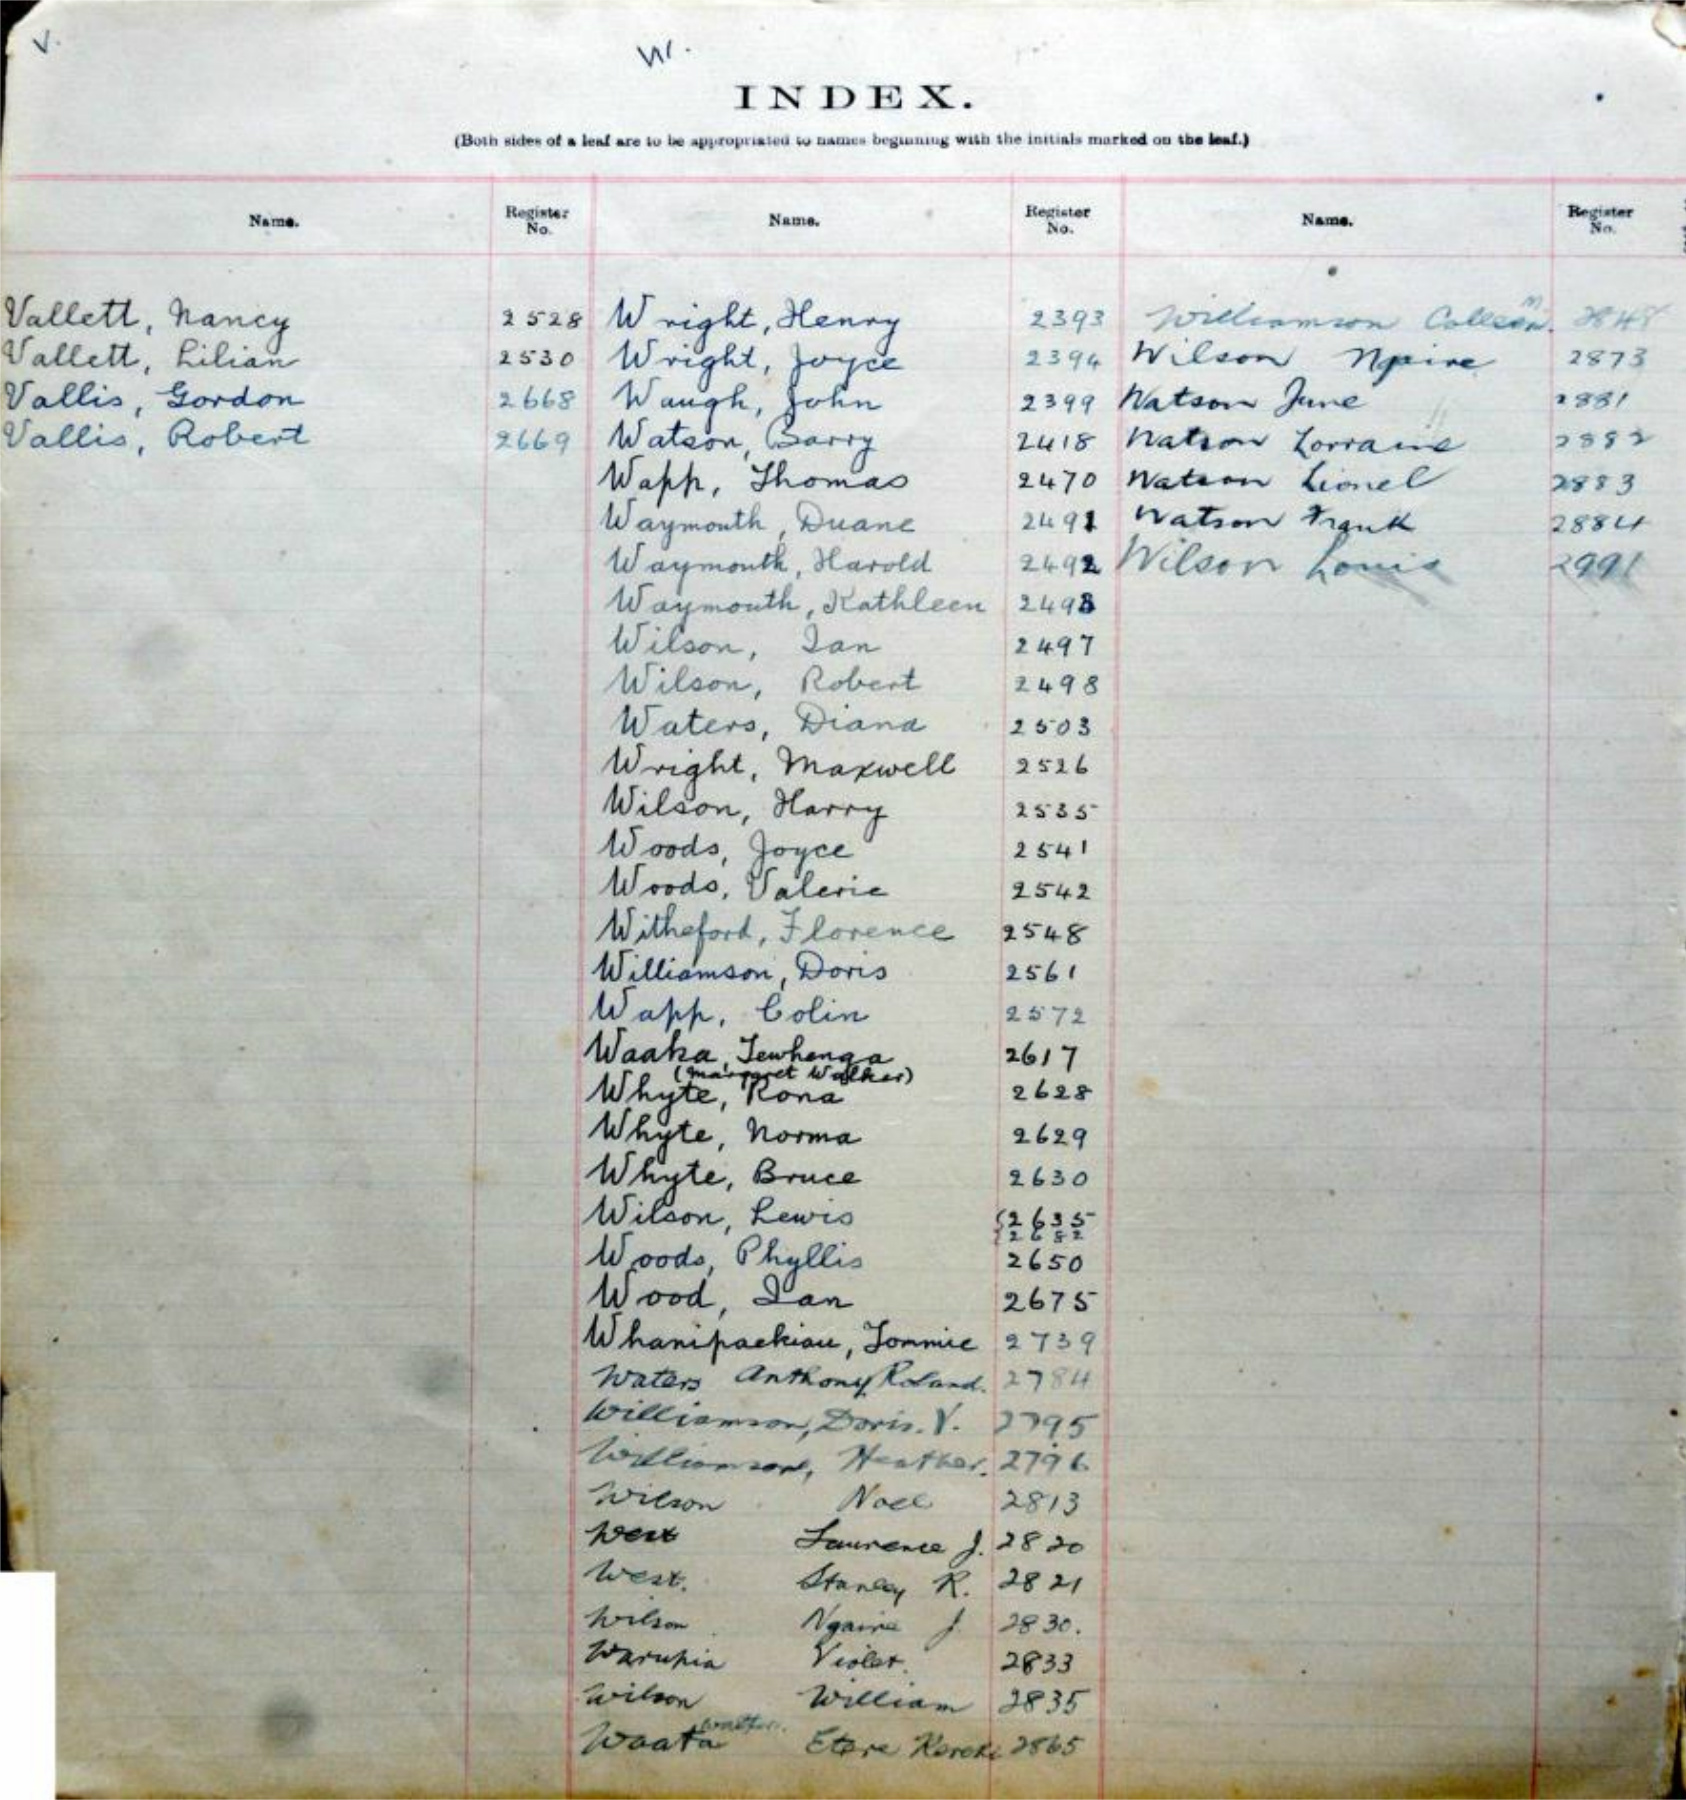 V.
W.
INDEX.
(Both sides of a leaf are to be appropriated to names beginning with the initials marked on the leaf.)
Name. Register No. Name. Register No. Name. Register No.
Vallett, Nancy 2528
Vallett, Lilian 2530
Vallis, Gordon 2668
Vallis, Robert 2669
Wright, Henry 2393
Wright, Joyce 2394
Waugh, John 2399
Watson, Barry 2418
Wapp, Thomas 2470
Waymouth, Duane 2491
Waymouth, Harold 2492
Waymouth, Kathleen 2493
Wilson, Ian 2497
Wilson, Robert 2498
Waters, Diana 2503
Wright, Maxwell 2526
Wilson, Harry 2535
Woods, Joyce 2541
Woods, Valerie 2542
Witheford, Florence 2548
Williamson, Doris 2561
Wapp, Colin 2572
Waaka, Tewhenga 2617
(Margaret Walker)
Whyte, Rona 2628
Whyte, Norma 2629
Whyte, Bruce 2630
Wilson, Lewis 2635
2682
Woods, Phyllis 2650
Wood, Ian 2675
Whanipaekiau, Tommie 2739
Waters Anthony Roland. 2784
Williamson, Doris. V. 2795
Williamson, Heather. 2796
Wilson Noel 2813
West Laurence J. 2820
West. Stanley R. 2821
Wilson Ngaire J 2830.
Warupia Violet. 2833
Wilson William 2835
Waata Etere Kereki 2865
Williamson Colleen M. 2848
Wilson Ngaire 2873
Watson June 2881
Watson Lorraine 2882
Watson Lionel 2883
Watson Frank 2884
Wilson Louis 2991